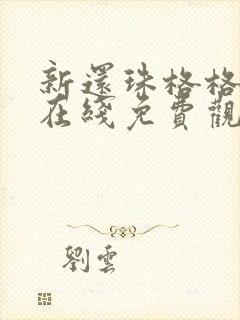 新還珠格格
在綫免費觀
劉雲